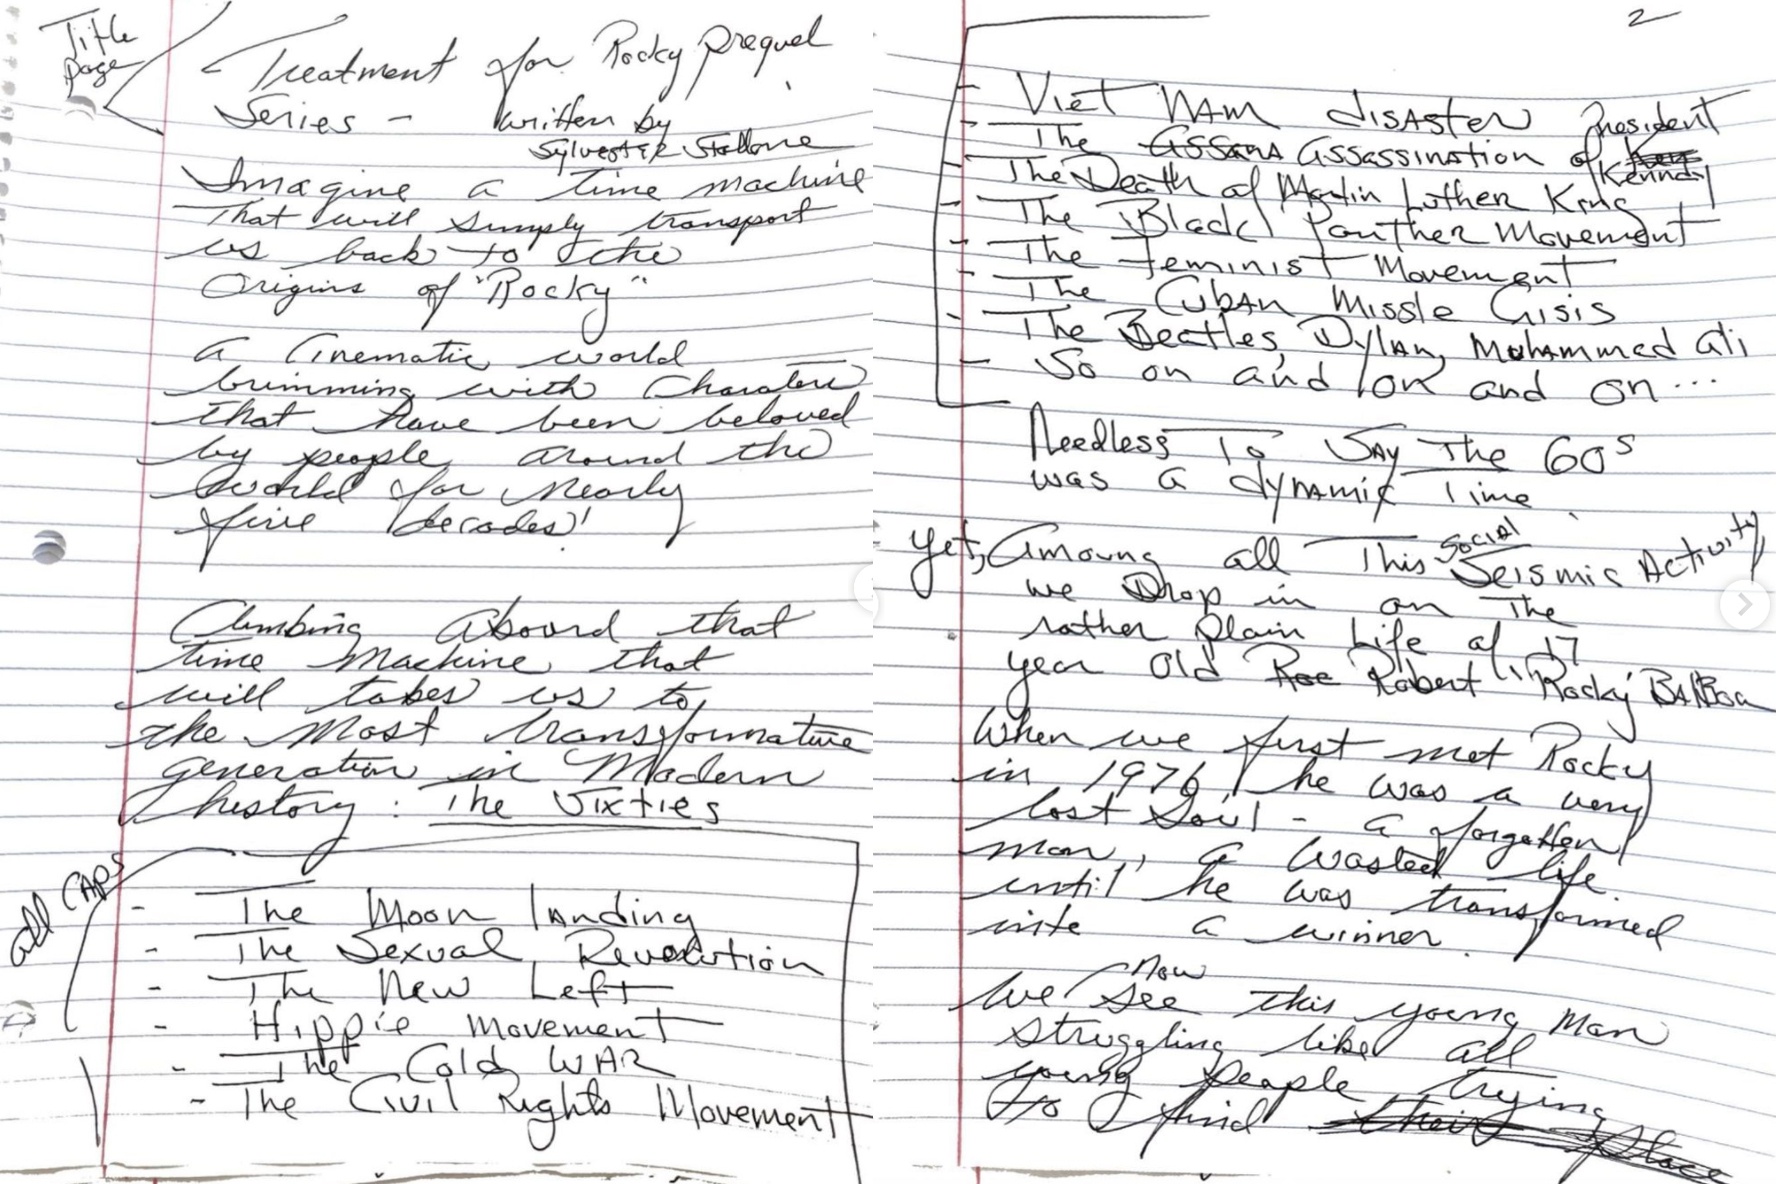 Title
page
Treatment for Rocky prequel
Series - written by
Sylvester Stallone
Imagine a time machine
That will simply transport
us back to the
Origins of "Rocky"
a Cinematic world
brimming with Charaters
that have been beloved
by people around the
world for nearly
five decades!
Climbing aboard that
time machine that
will takes us to
the most transformative
generation in Modern
history: The Sixties
all CAPS
- The Moon landing
- The Sexual Revolution
- The New Left
- Hippie movement
- The Cold WAR
- The Civil Rights Movement
2
- Viet NAm disAster
- The assassination of President Kennedy
- The Death of Martin Luther King
- The Black Panther Movement
- The Feminist Movement
- The CubAn Missle Crisis
- The Beatles, DylAn, Mohammed ali
- So on and on and on...
Needless To SAy The 60s
was a dynamic Time
yet, amoung all This Social Seismic Activity
we Drop in on The
rather plain Life of 17
year Old Robert "Rocky" BAlBoa
When we first met Rocky
in 1976, he was a very
lost Soul - a forgotten
man, a wasted life
until he was transformed
into a winner.
We now See this young man
struggling like all
young people trying
to find their place